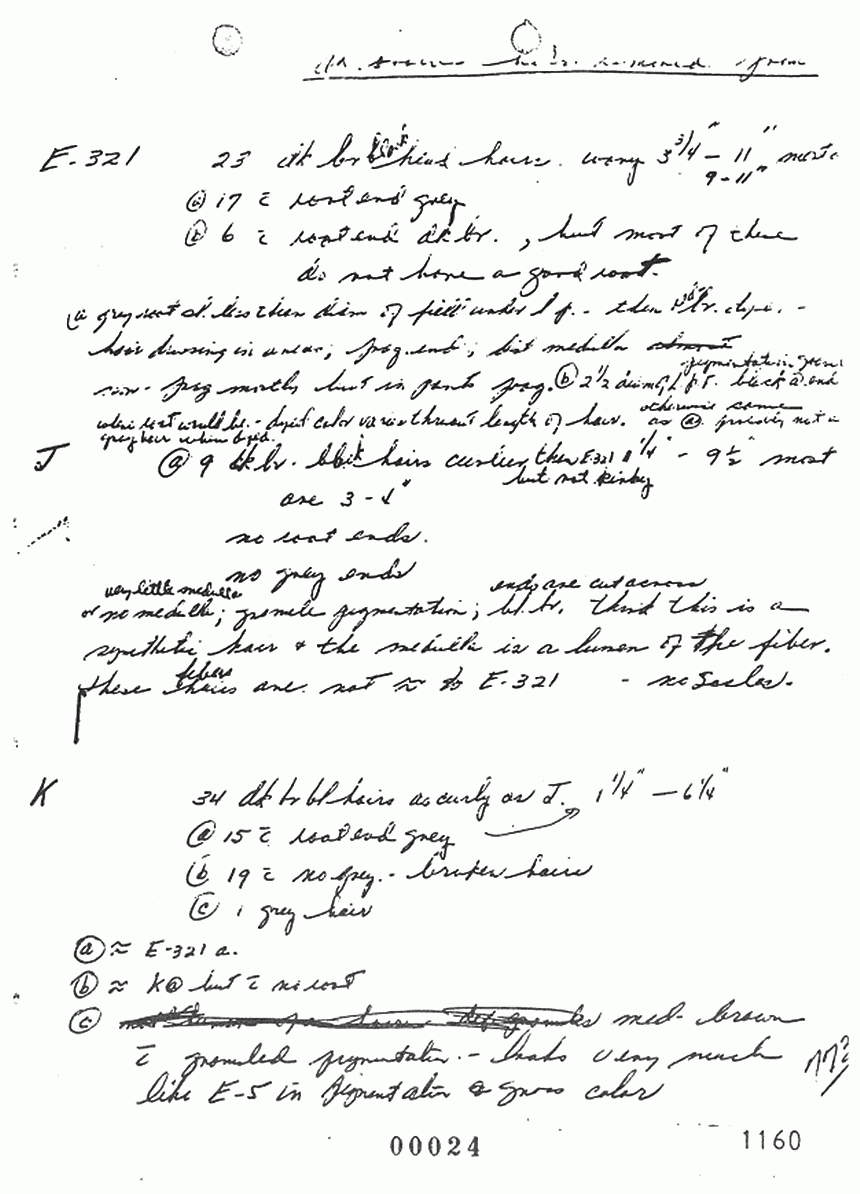 hair removed from
E-321 23 dk br black head hairs. wavy 3 3/4" - 11" most
9-11"
(a) 17 c̄ root end grey
(b) 6 c̄ root end dk br. , but most of these
do not have a good root.
(a grey root sl. less than diam of field under l p. - then br. dye. -
hair diam; frag. end; dist medulla
pigmentation
mostly but in parts frag. (b) 2 1/2 black end
otherwise same
where root would be. - dyed color varies thruout length of hair. as (a). possibly not a
grey hair when dyed.
J (a) 9 dk br. blk hairs curlier than E-321 1/4" - 9 1/2" most
but not kinky
are 3-4"
no root ends.
no grey ends
very little medulla ends are cut across
or no medulla; granule pigmentation; bl. br. think this is a
synthetic hair & the medulla is a lumen of the fiber.
fibers
these hairs are not ≈ to E-321 - no scales.
K 34 dk br bl hairs as curly as J. 1 1/4" - 6 1/4"
(a) 15 c̄ root end grey
(b) 19 c̄ no grey. - broken hairs
(c) 1 grey hair
(a) ≈ E-321 a.
(b) ≈ K(a) but c̄ no root
(c) med- brown
c̄ granuled pigmentation - looks very much
like E-5 in pigmentation & gross color
00024 1160